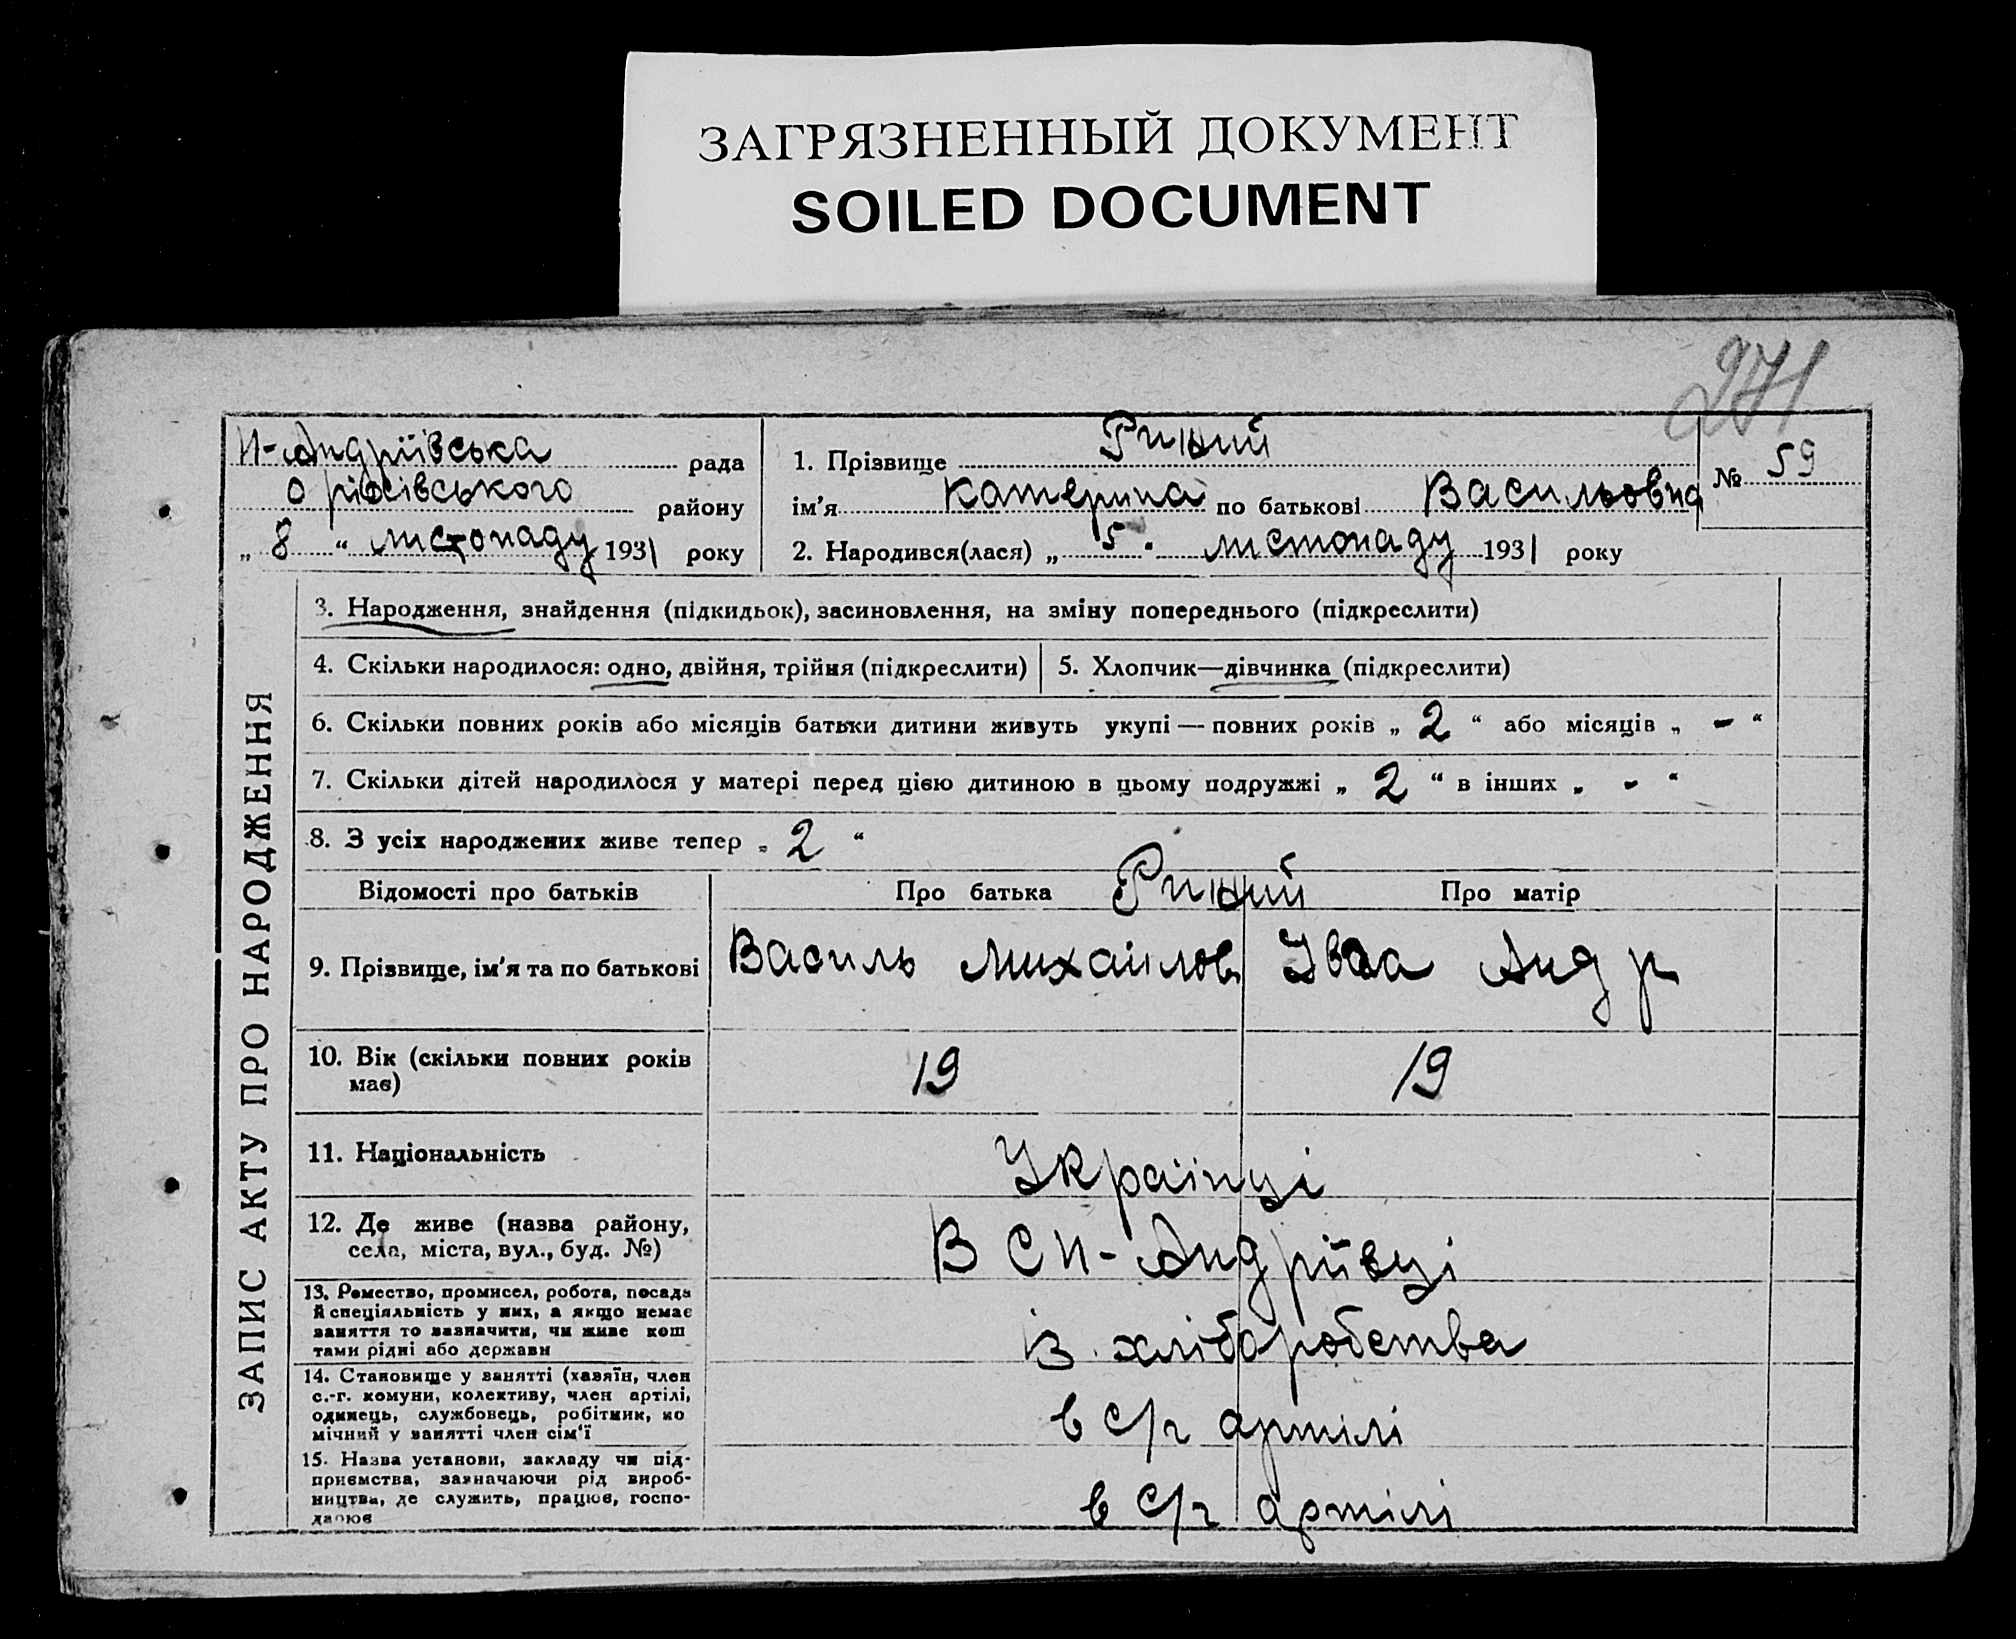 ЗАГРЯЗНЕННЫЙ ДОКУМЕНТ
SOILED DOCUMENT
271
Н-Андріївська рада
району
„ 8 “ листопаду 1931 року
1. Прізвище
ім'я Катерина по батькові Васильовна
№ 59
2. Народився(лася) „ 5 “ листопаду 1931 року
ЗАПИС АКТУ ПРО НАРОДЖЕННЯ
3. Народження, знайдення (підкидьок), засиновлення, на зміну попереднього (підкреслити)
4. Скільки народилося: одно, двійня, трійня (підкреслити)
5. Хлопчик—дівчинка (підкреслити)
6. Скільки повних років або місяців батьки дитини живуть укупі — повних років „ 2 “ або місяців „ - “
7. Скільки дітей народилося у матері перед цією дитиною в цьому подружжі „ 2 “ в інших „ - “
8. З усіх народжених живе тепер „ 2 “
Відомості про батьків
Про батька
Про матір
9. Прізвище, ім'я та по батькові
Василь Михайлов
Андр
10. Вік (скільки повних років
має)
19
19
11. Національність
Українці
12. Де живе (назва району,
села, міста, вул., буд. №)
В С Н-Андріївці
13. Ремество, промисел, робота, посада
й спеціяльність у них, а якщо немає
заняття то зазначити, чи живе кош
тами рідні або держави
із хліборобства
14. Становище у занятті (хазяїн, член
с.-г. комуни, колективу, член артілі,
одинець, службовець, робітник, по
мічний у занятті член сім'ї
в с/г артілі
15. Назва установи, закладу чи під-
приємства, зазначаючи рід вироб-
ництва, де служить, працює, госпо-
дарює
в с/г артілі